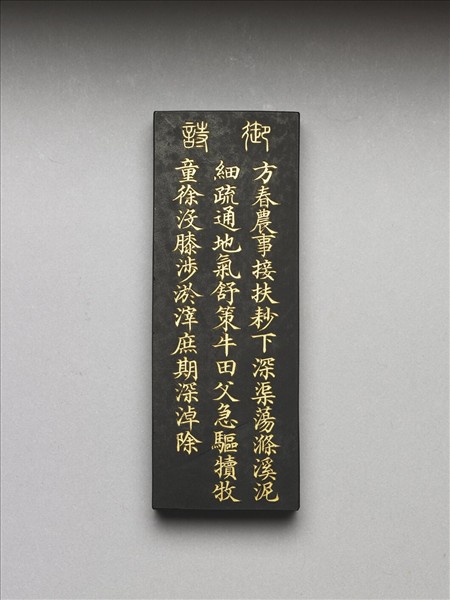 御詩
方春農事接扶耖下深渠蕩滌溪泥
細疏通地氣舒策牛田父急驅犢牧
童徐没膝涉淤滓庶期深淖除